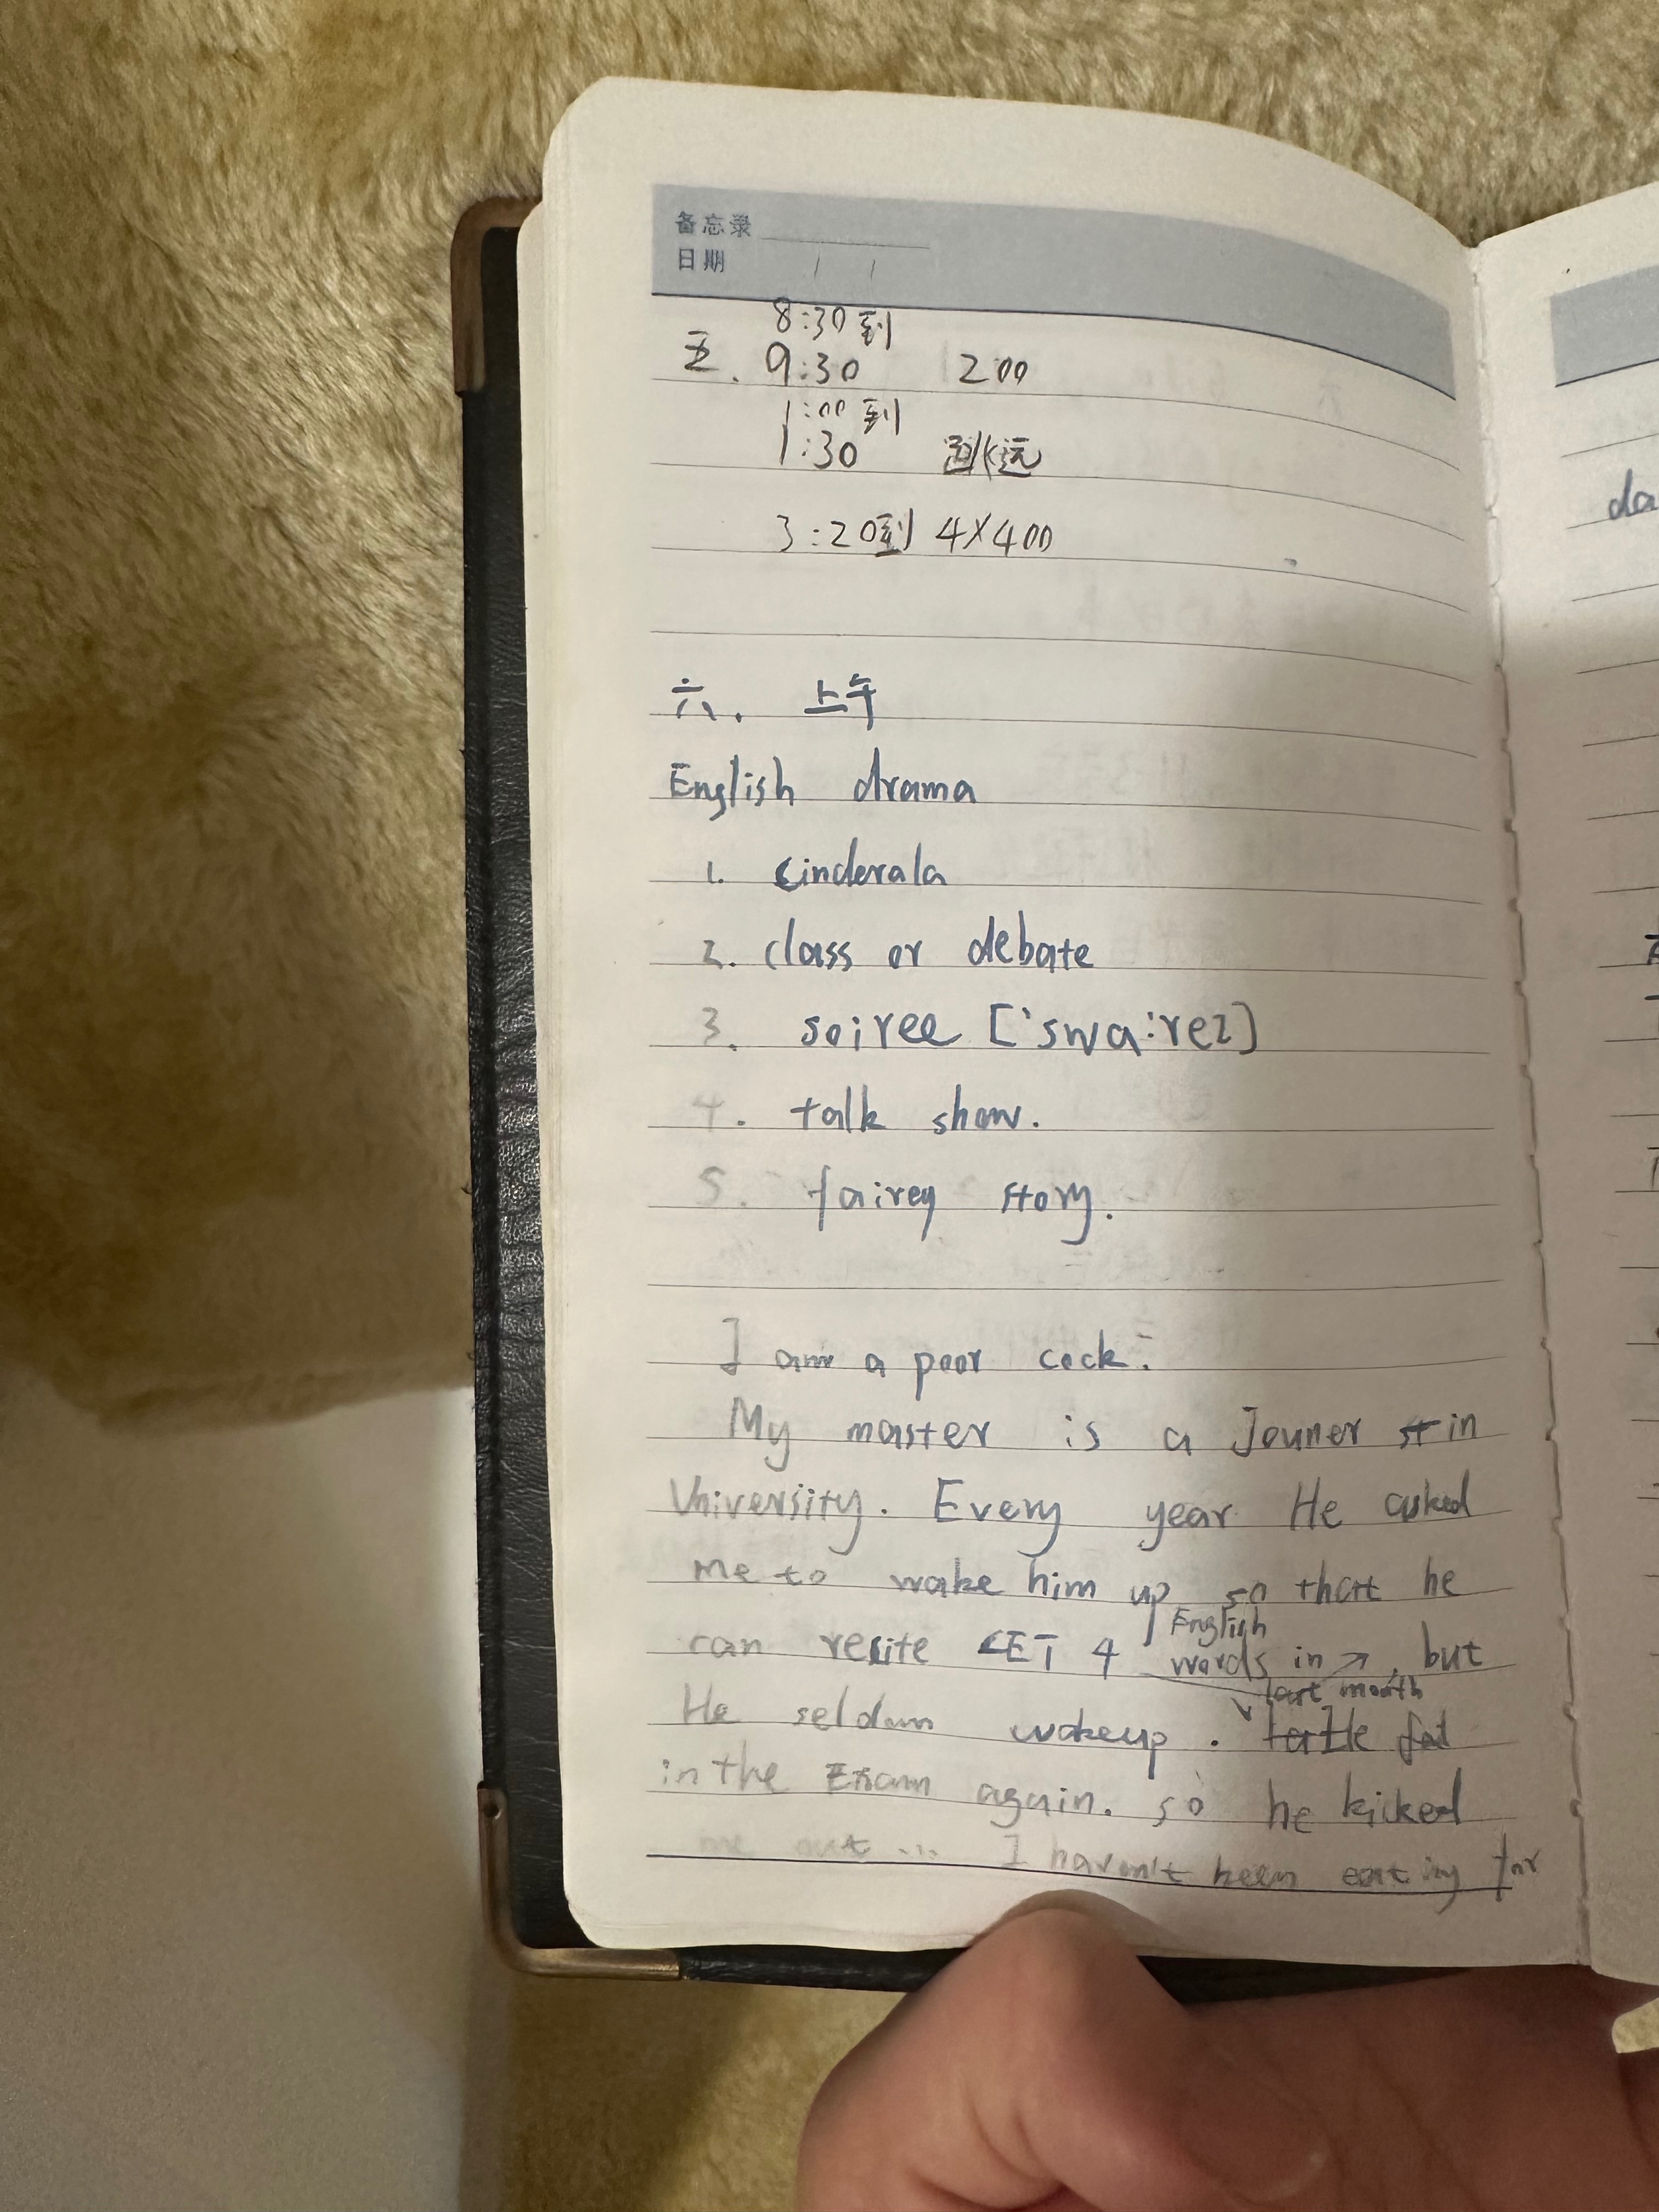 备忘录
日期 / /
8:30到
五. 9:30 200
1:00到
1:30 跳远
3:20到 4×400
六. 上午
English drama
1. Cinderala
2. class or debate
3. soiree ['swa:rei]
4. talk show.
5. fairey story.
I am a poor cock.
My master is a Jouner in
University. Every year He asked
me to wake him up so that he
can recite CET 4 English words in ↗, but
last month
He seldom wakeup.
in the Exam again. so he kicked
me out ... I haven't been eating for
da